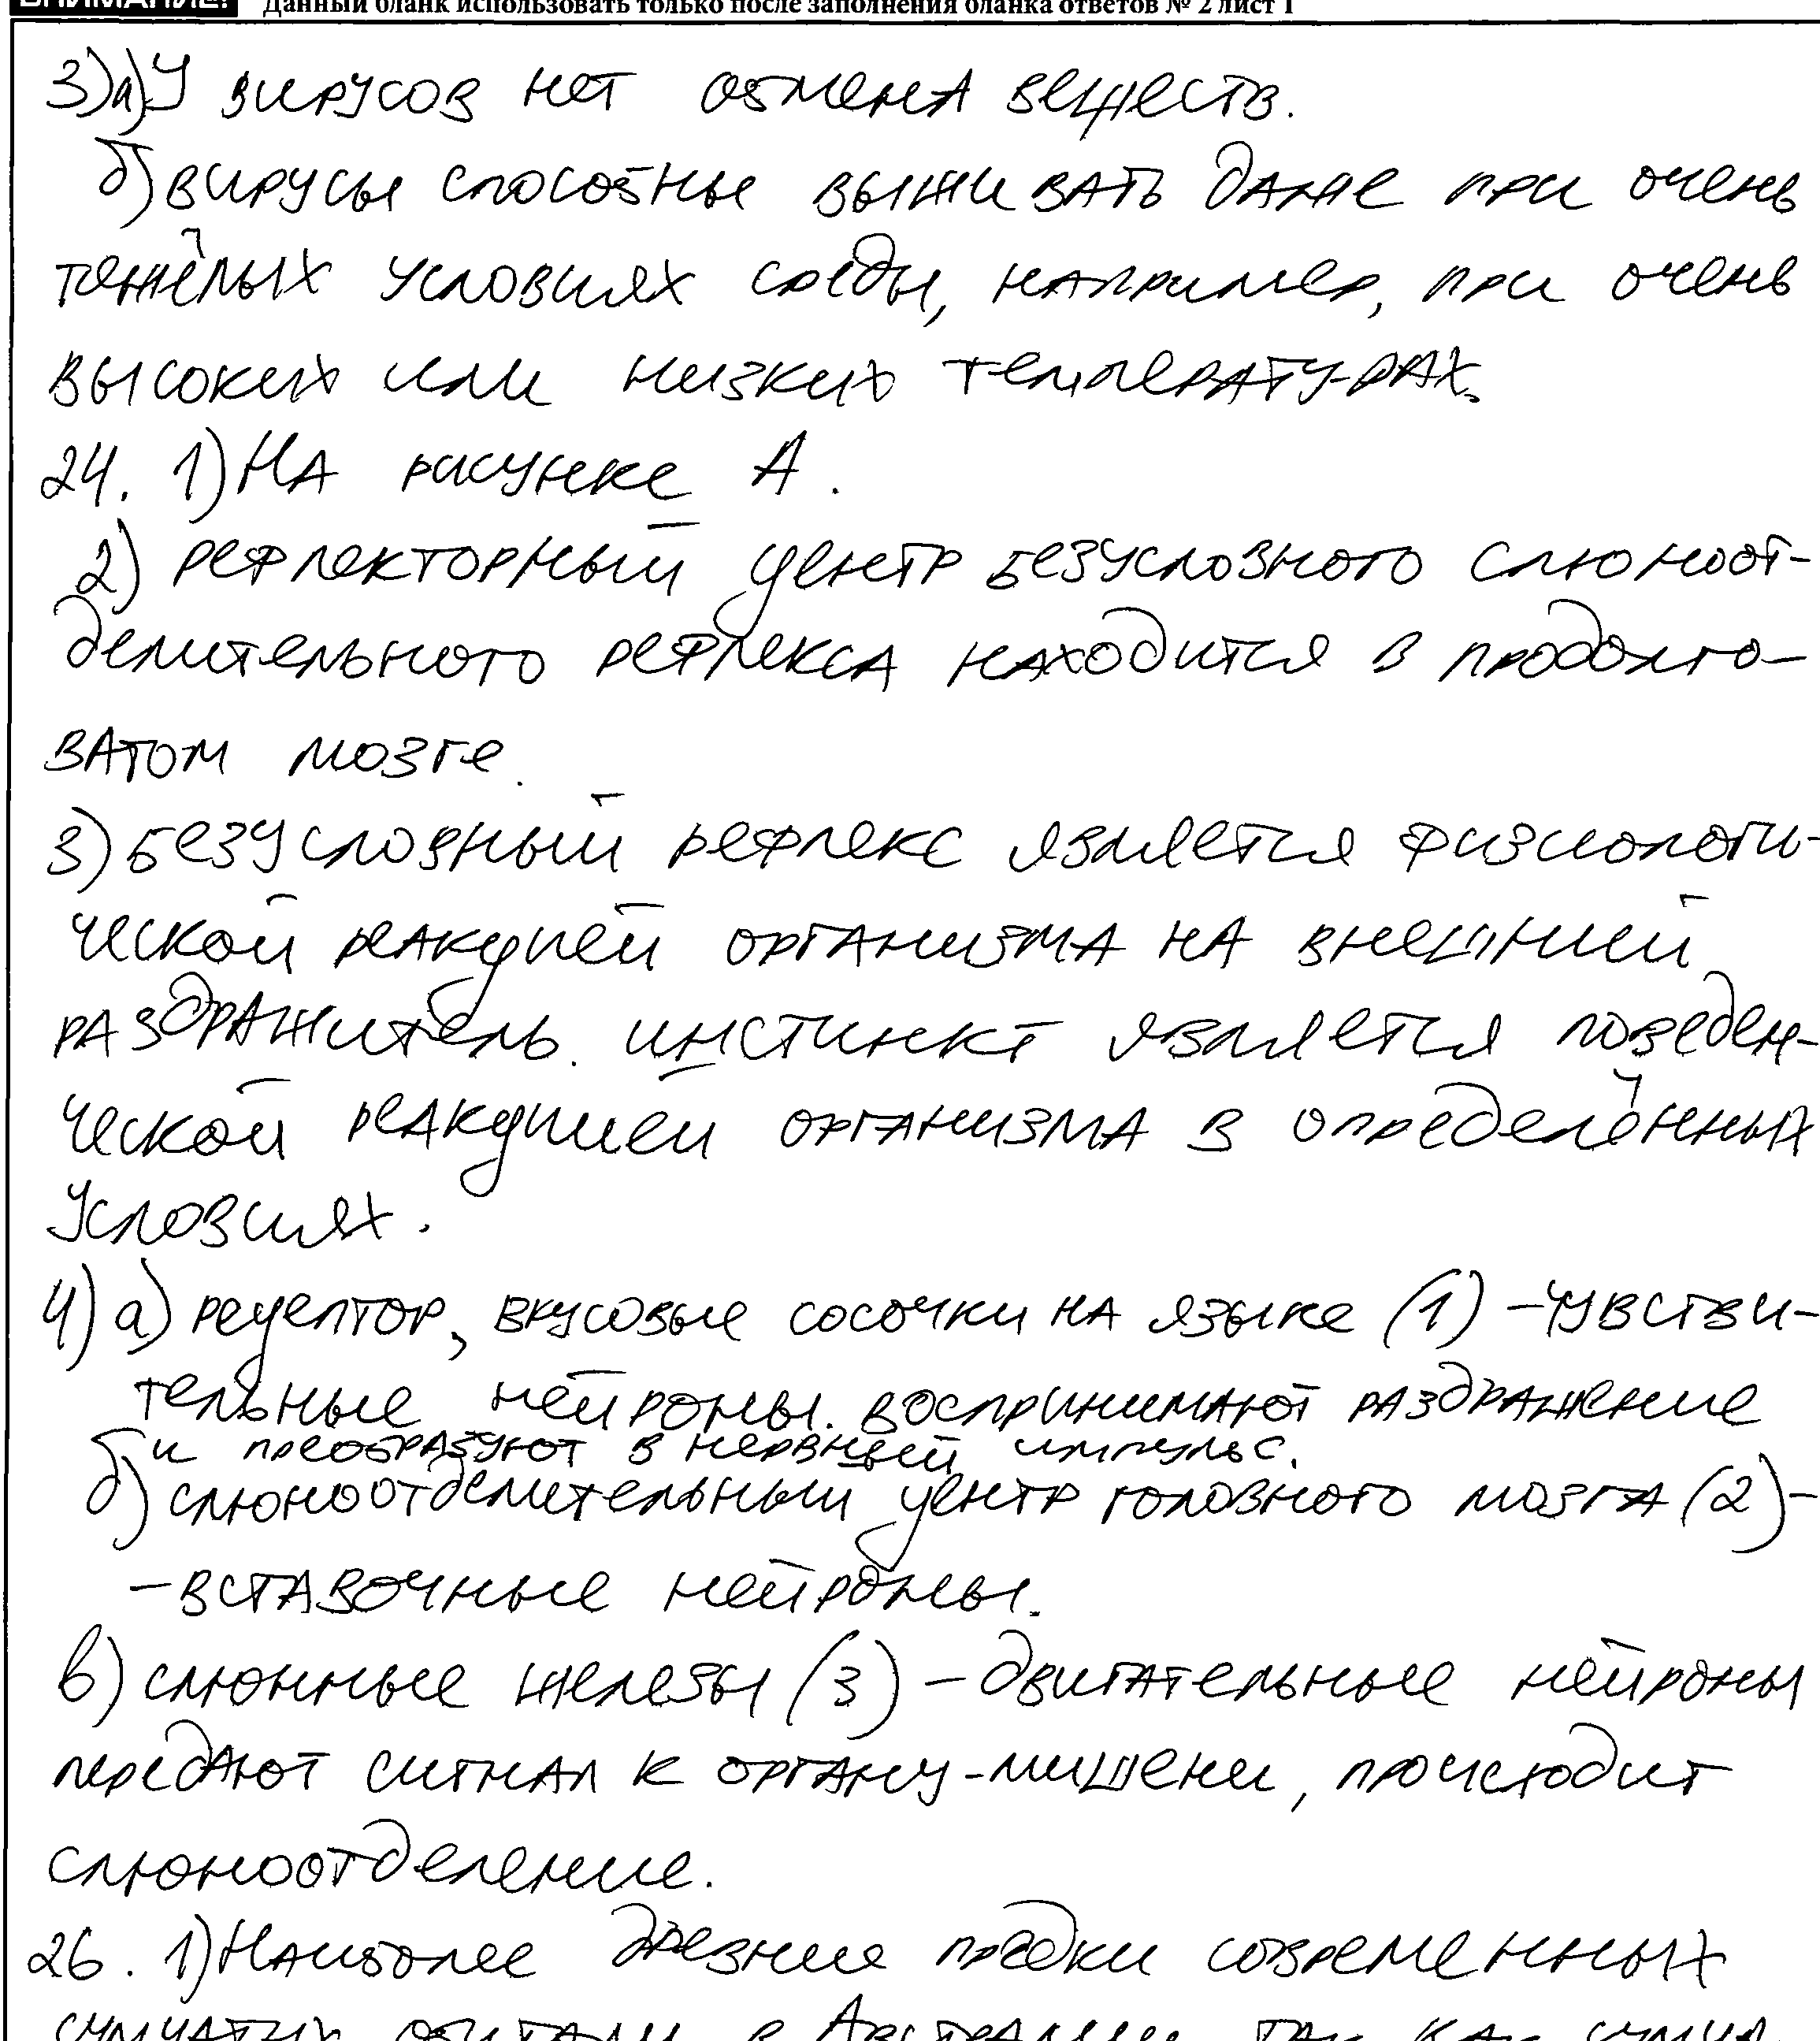 ВНИМАНИЕ! Данный бланк использовать только после заполнения бланка ответов № 2 лист 1
3)а)У вирусов нет обмена веществ.
б)вирусы способны выживать даже при очень
тяжёлых условиях среды, например, при очень
высоких или низких температурах.
24. 1)На рисунке А.
2) рефлекторный центр безусловного слюноот-
делительного рефлекса находится в продолго-
ватом мозге.
3)безусловный рефлекс является физиологи-
ческой реакцией организма на внешний
раздражитель. инстинкт является поведен-
ческой реакцией организма в определённых
условиях.
4) а) рецептор, вкусовые сосочки на языке (1) -чувстви-
тельные нейроны. воспринимают раздражение
и преобразуют в нервный импульс.
б) слюноотделительный центр головного мозга (2)-
-вставочные нейроны.
в) слюнные железы (3) - двигательные нейроны
передают сигнал к органу-мишени, происходит
слюноотделение.
26. 1)Наиболее древние предки современных
сумчатых обитали в Австралии так как